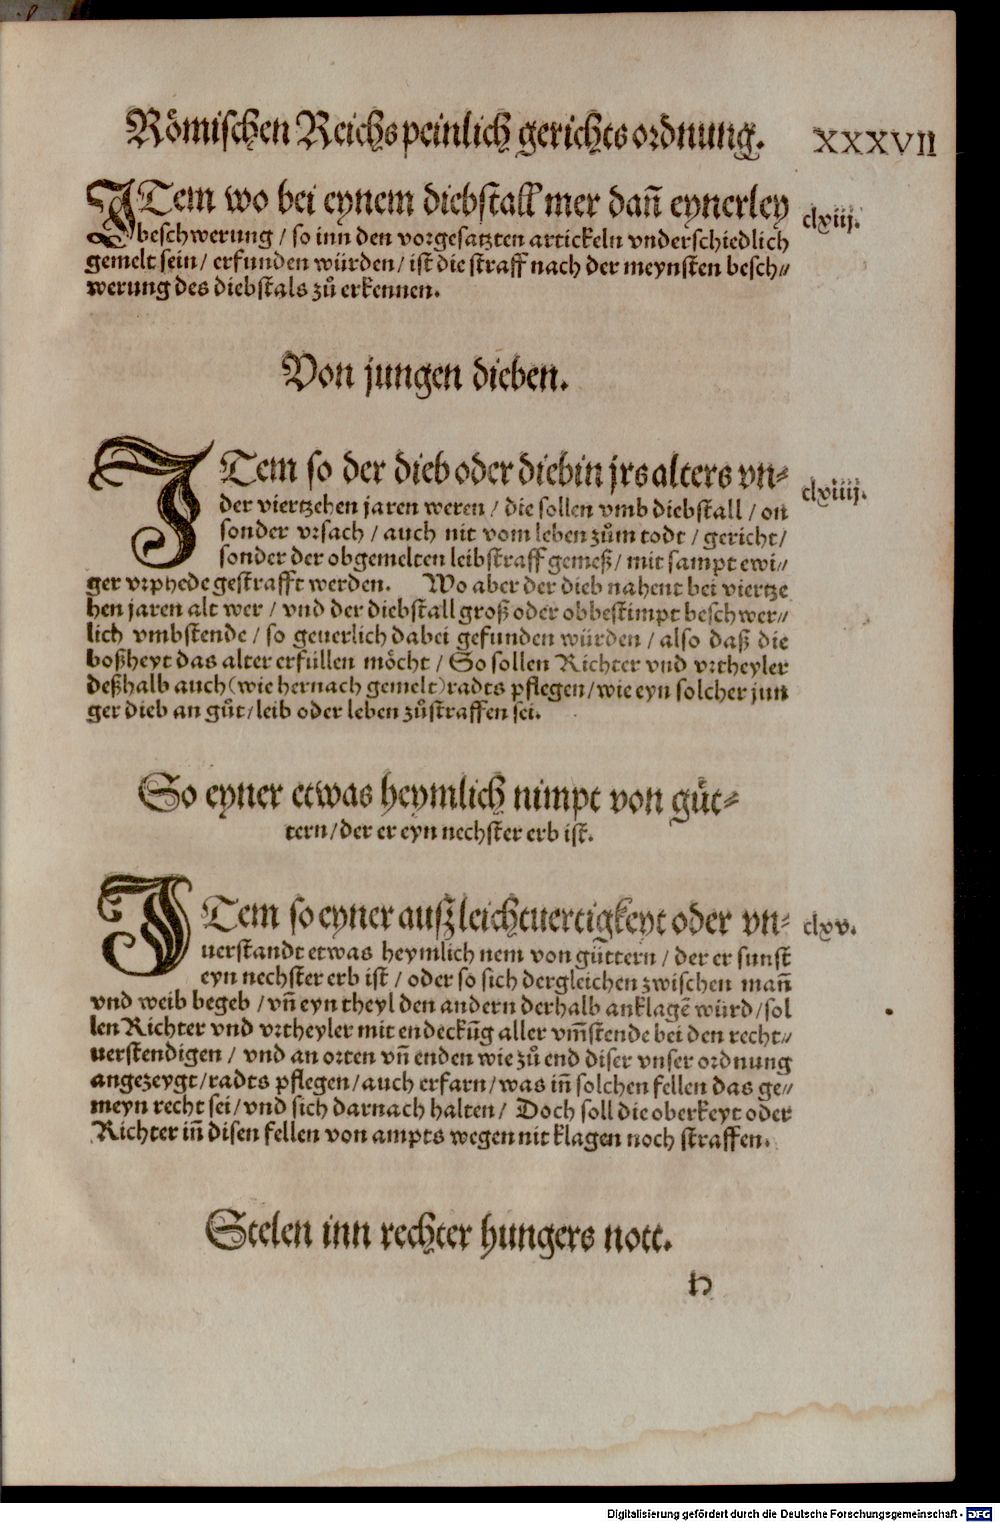 Römischen Reichs peinlich gerichts ordnung. XXXVII
ITem wo bei eynem diebstall mer dañ eynerley clxiij.
beschwerung / so inn den vorgesatzten artickeln vnderschiedlich
gemelt sein / erfunden würden / ist die straff nach der meynsten besch⸗
werung des diebstals zů erkennen.
Von jungen dieben.
ITem so der dieb oder diebin jrs alters vn⸗ clxiiij.
der viertzehen jaren weren / die sollen vmb diebstall / on
sonder vrsach / auch nit vom leben zům todt / gericht /
sonder der obgemelten leibstraff gemeß / mit sampt ewi⸗
ger vrphede gestrafft werden. Wo aber der dieb nahent bei viertze
hen jaren alt wer / vnd der diebstall groß oder obbestimpt beschwer⸗
lich vmbstende / so geuerlich dabei gefunden würden / also daß die
boßheyt das alter erfüllen möcht / So sollen Richter vnd vrtheyler
deßhalb auch (wie hernach gemelt) radts pflegen / wie eyn solcher jun
ger dieb an gůt / leib oder leben zůstraffen sei.
So eyner etwas heymlich nimpt von güt⸗
tern / der er eyn nechster erb ist.
ITem so eyner auß leichtuertigkeyt oder vn⸗ clxv.
uerstandt etwas heymlich nem von güttern / der er sunst
eyn nechster erb ist / oder so sich dergleichen zwischen mañ
vnd weib begeb / vñ eyn theyl den andern derhalb anklagē würd / sol
len Richter vnd vrtheyler mit endeckũg aller vm̃stende bei den recht⸗
uerstendigen / vnd an orten vñ enden wie zů end diser vnser ordnung
angezeygt / radts pflegen / auch erfarn / was iñ solchen fellen das ge⸗
meyn recht sei / vnd sich darnach halten / Doch soll die oberkeyt oder
Richter iñ disen fellen von ampts wegen nit klagen noch straffen.
Stelen inn rechter hungers nott.
H
Digitalisierung gefördert durch die Deutsche Forschungsgemeinschaft - DFG